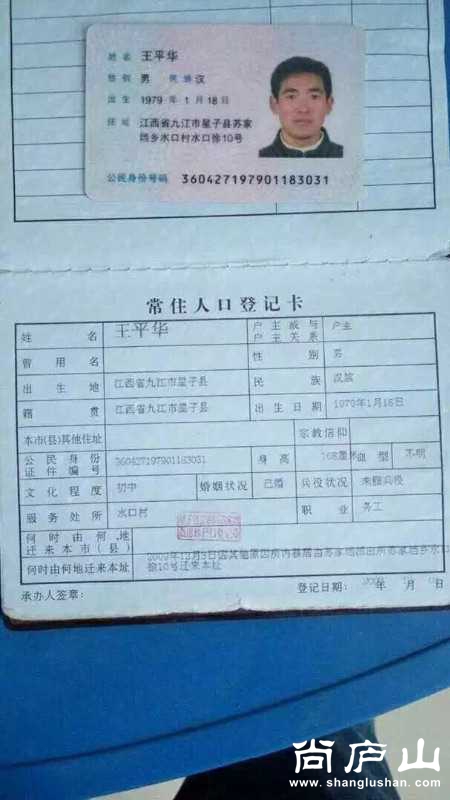 姓名 王平华
性别 男 民族 汉
出生 1979 年 1 月 18 日
住址 江西省九江市星子县苏家
垱乡水口村水口徐10号
公民身份号码 360427197901183031
常住人口登记卡
姓名 王平华 户主或与户主关系 户主
曾用名 性别 男
出生地 江西省九江市星子县 民族 汉族
籍贯 江西省九江市星子县 出生日期 1979年1月18日
本市(县)其他住址 宗教信仰
公民身份证件编号 360427197901183031 身高 168厘米 血型 不明
文化程度 初中 婚姻状况 已婚 兵役状况 未服兵役
服务处所 水口村 职业 务工
何时由何地迁来本市(县)
何时由何地迁来本址 徐10号迁来本址
承办人签章: 登记日期: 年 月 日
尚庐山
www.shanglushan.com